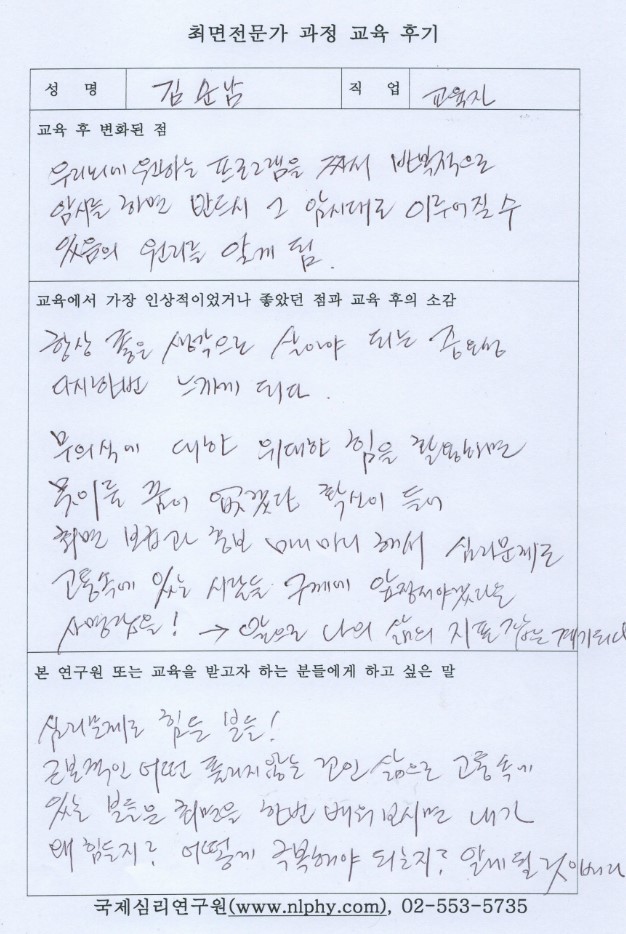 최면전문가 과정 교육 후기
성 명 김순남 직 업 교육자
교육 후 변화된 점
우리뇌에 원하는 프로그램을 짜서 반복적으로
암시를 하면 반드시 그 암시대로 이루어질 수
있음의 원리를 알게 됨.
교육에서 가장 인상적이었거나 좋았던 점과 교육 후의 소감
항상 좋은 생각으로 살아야 되는 중요성
다시한번 느끼게 되다.
무의식에 대한 위대한 힘을 활용하면
못이룰 꿈이 없겠다 확신이 들어
최면 보급과 홍보 해서 심리문제로
고통속에 있는 사람들 구제에 앞장서야겠다는
사명감을! → 앞으로 나의 삶의 지표 계기되다
본 연구원 또는 교육을 받고자 하는 분들에게 하고 싶은 말
심리문제로 힘든 분들!
근본적인 어떤 풀리지않는 꼬인 삶으로 고통속에
있는 분들은 최면을 한번 배워보시면 내가
왜 힘든지? 어떻게 극복해야 되는지? 알게될 것이다
국제심리연구원(www.nlphy.com), 02-553-5735